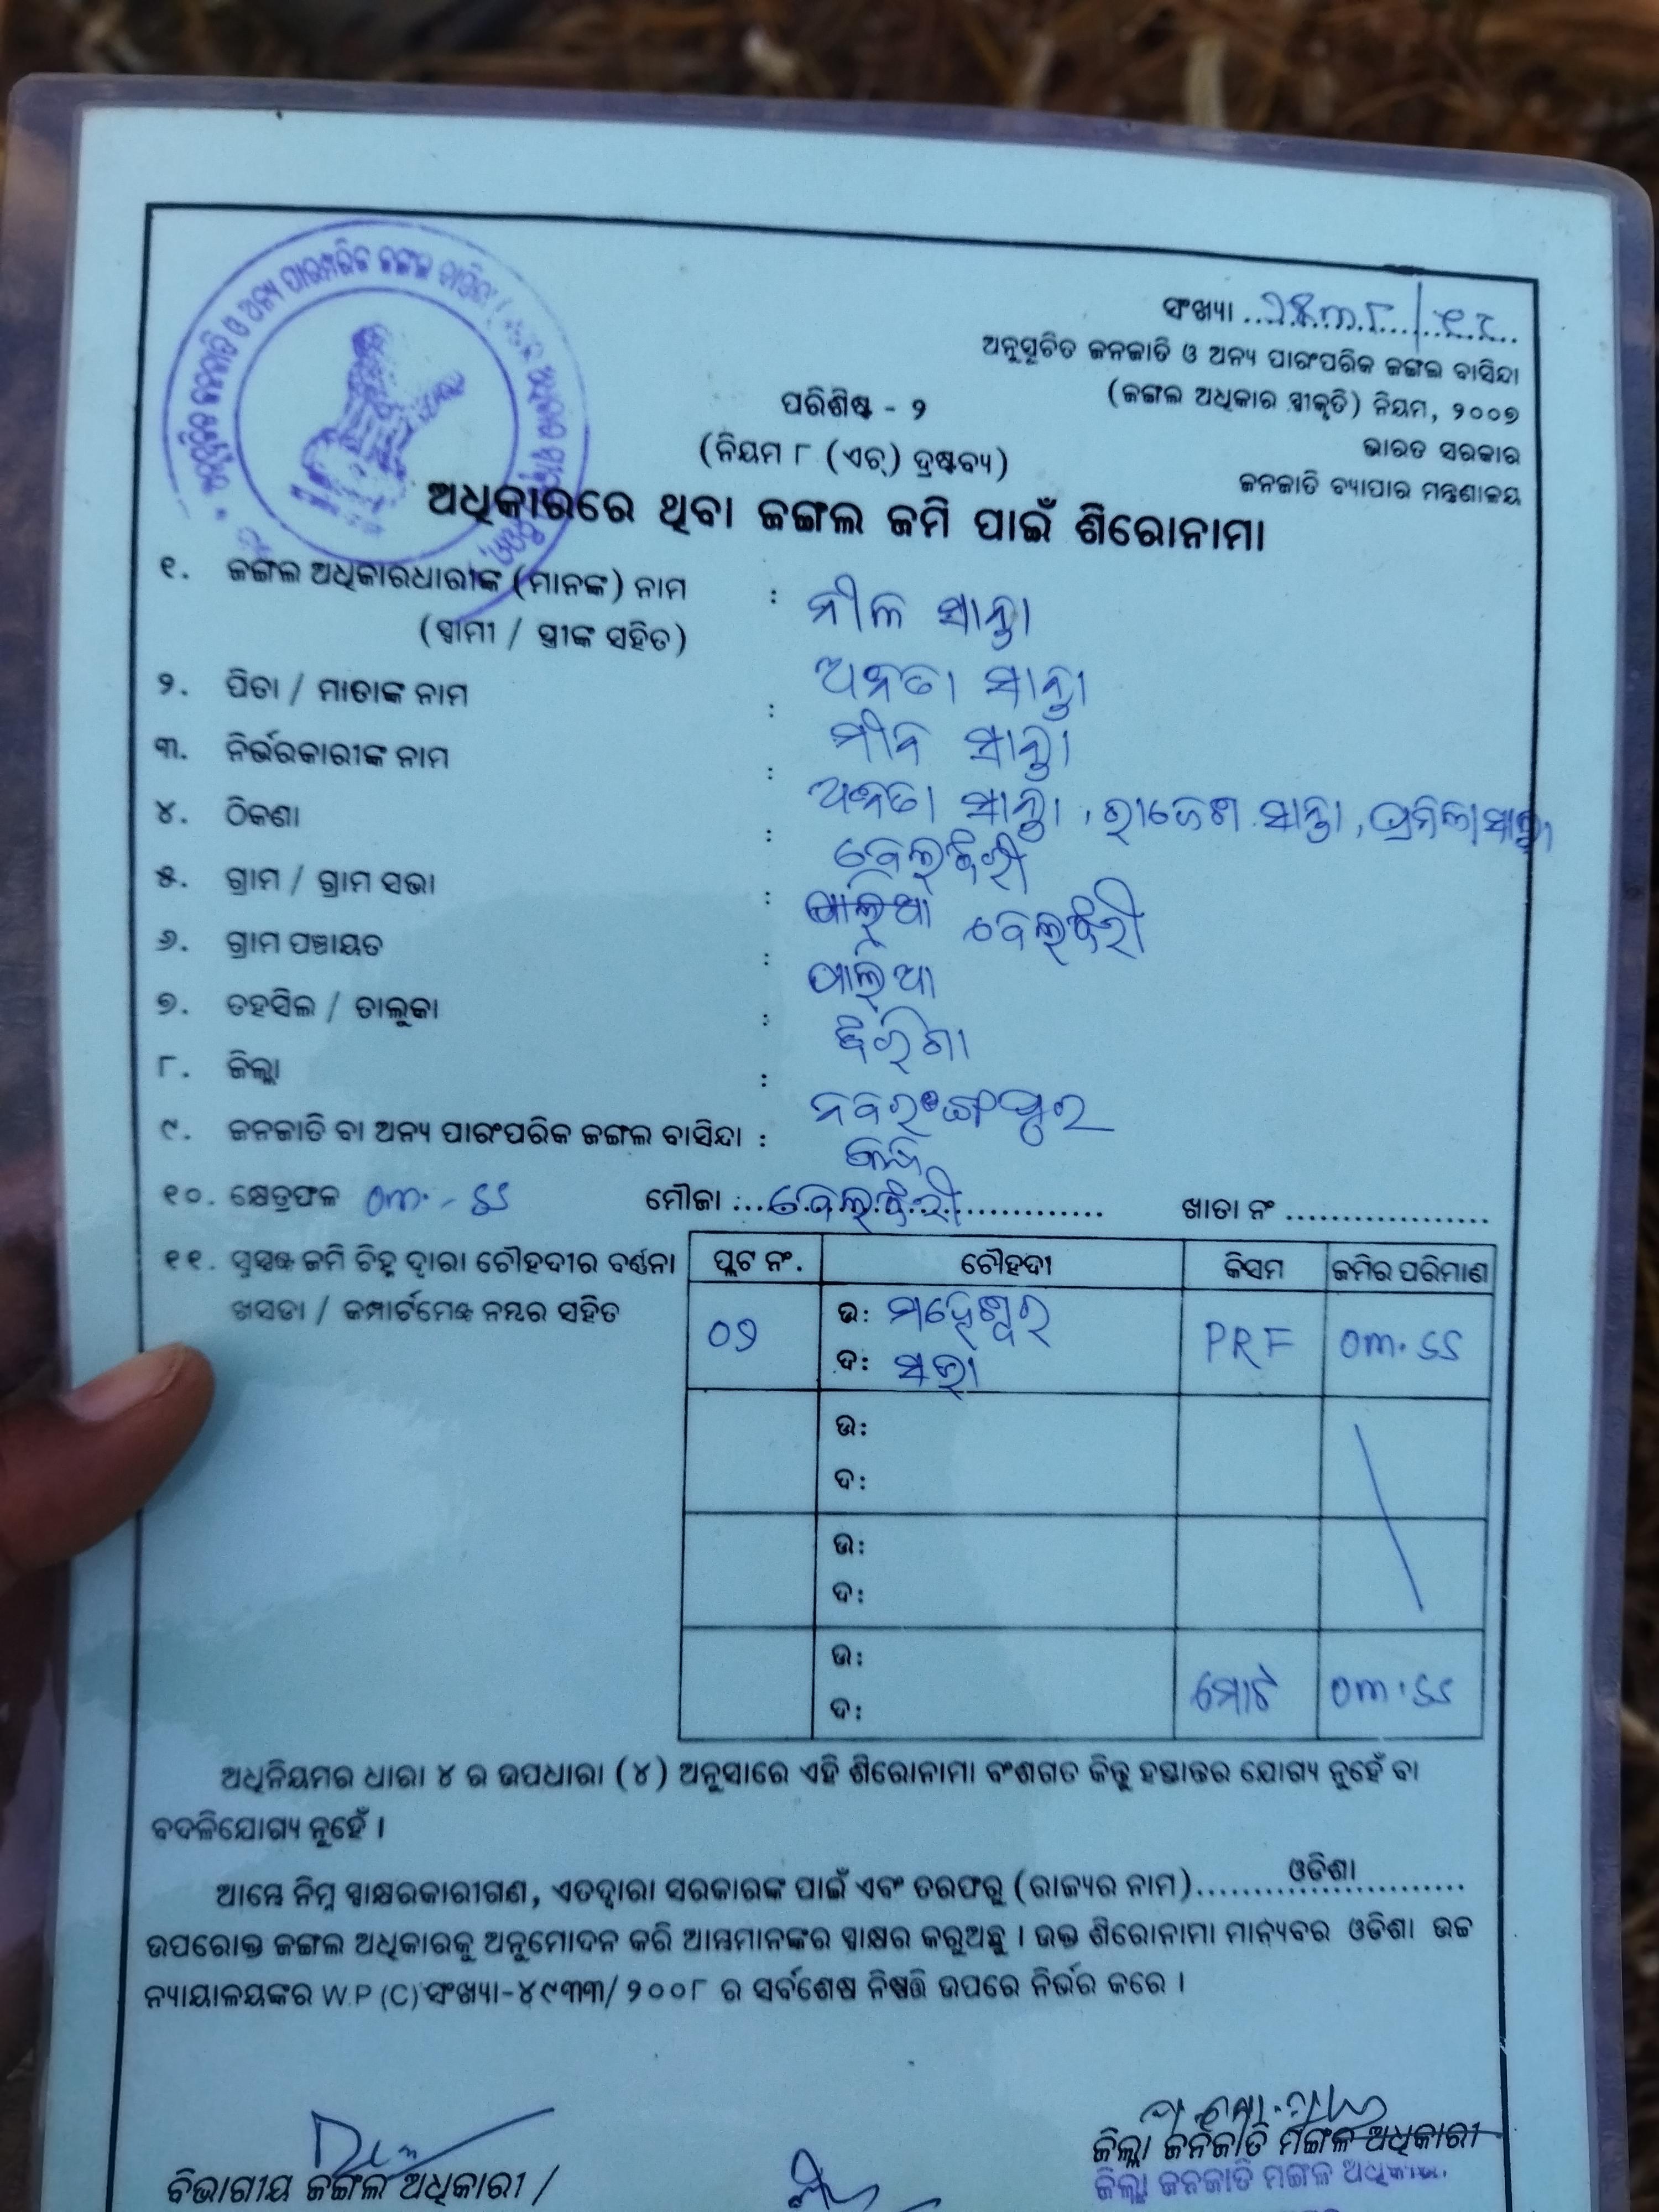 ସଂଖ୍ୟା
ଅନୁସୂଚିତ ଜନଜାତି ଓ ଅନ୍ୟ ପାରଂପରିକ ଜଙ୍ଗଲ ବାସିନ୍ଦା
(ଜଙ୍ଗଲ ଅଧିକାର ସ୍ୱୀକୃତି) ନିୟମ, ୨୦୦୭
ଭାରତ ସରକାର
ଜନଜାତି ବ୍ୟାପାର ମନ୍ତ୍ରଣାଳୟ
ପରିଶିଷ୍ଟ - ୨
(ନିୟମ ୮ (ଏଚ୍) ଦ୍ରଷ୍ଟବ୍ୟ)
ଅଧିକାରରେ ଥିବା ଜଙ୍ଗଲ ଜମି ପାଇଁ ଶିରୋନାମା
୧. ଜଙ୍ଗଲ ଅଧିକାରଧାରୀଙ୍କ (ମାନଙ୍କ) ନାମ : ନୀଳ ସାନ୍ତା
(ସ୍ୱାମୀ / ସ୍ତ୍ରୀଙ୍କ ସହିତ)
୨. ପିତା / ମାତାଙ୍କ ନାମ : ସାନ୍ତା
ସାନ୍ତା
୩. ନିର୍ଭରକାରୀଙ୍କ ନାମ : ସାନ୍ତା, ରାଜେଶ ସାନ୍ତା, ପ୍ରମିଳା ସାନ୍ତା
୪. ଠିକଣା :
୫. ଗ୍ରାମ / ଗ୍ରାମ ସଭା :
୬. ଗ୍ରାମ ପଞ୍ଚାୟତ :
୭. ତହସିଲ / ତାଲୁକା :
୮. ଜିଲ୍ଲା : ନବରଙ୍ଗପୁର
୯. ଜନଜାତି ବା ଅନ୍ୟ ପାରଂପରିକ ଜଙ୍ଗଲ ବାସିନ୍ଦା :
୧୦. କ୍ଷେତ୍ରଫଳ ୦୩.-୪୪ ମୌଜା ... ଖାତା ନଂ ...
୧୧. ସୁସ୍ପଷ୍ଟ ଜମି ଚିହ୍ନ ଦ୍ୱାରା ଚୌହଦୀର ବର୍ଣ୍ଣନା
ଖସଡା / କମ୍ପାର୍ଟମେଣ୍ଟ ନମ୍ବର ସହିତ
ପ୍ଲଟ ନଂ. ଚୌହଦୀ କିସମ ଜମିର ପରିମାଣ
୦୨ ଉ: ମହେଶ୍ୱର PRF ୦୩.୪୪
ଦ: ସଭା
ଉ:
ଦ:
ଉ:
ଦ:
ଉ: ମୋଟ ୦୩.୪୪
ଦ:
ଅଧିନିୟମର ଧାରା ୪ ର ଉପଧାରା (୪) ଅନୁସାରେ ଏହି ଶିରୋନାମା ବଂଶଗତ କିନ୍ତୁ ହସ୍ତାନ୍ତର ଯୋଗ୍ୟ ନୁହେଁ ବା
ବଦଳିଯୋଗ୍ୟ ନୁହେଁ ।
ଆମ୍ଭେ ନିମ୍ନ ସ୍ୱାକ୍ଷରକାରୀଗଣ, ଏତଦ୍ୱାରା ସରକାରଙ୍କ ପାଇଁ ଏବଂ ତରଫରୁ (ରାଜ୍ୟର ନାମ)......ଓଡିଶା......
ଉପରୋକ୍ତ ଜଙ୍ଗଲ ଅଧିକାରକୁ ଅନୁମୋଦନ କରି ଆମ୍ଭମାନଙ୍କର ସ୍ୱାକ୍ଷର କରୁଅଛୁ । ଉକ୍ତ ଶିରୋନାମା ମାନ୍ୟବର ଓଡିଶା ଉଚ୍ଚ
ନ୍ୟାୟାଳୟଙ୍କର W.P (C) ସଂଖ୍ୟା-୪୯୩୩/୨୦୦୮ ର ସର୍ବଶେଷ ନିଷ୍ପତ୍ତି ଉପରେ ନିର୍ଭର କରେ ।
ବିଭାଗୀୟ ଜଙ୍ଗଲ ଅଧିକାରୀ / ଜିଲ୍ଲା ଜନଜାତି ମଙ୍ଗଳ ଅଧିକାରୀ
ଜିଲ୍ଲା ଜନଜାତି ମଙ୍ଗଳ ଅଧିକାରୀ